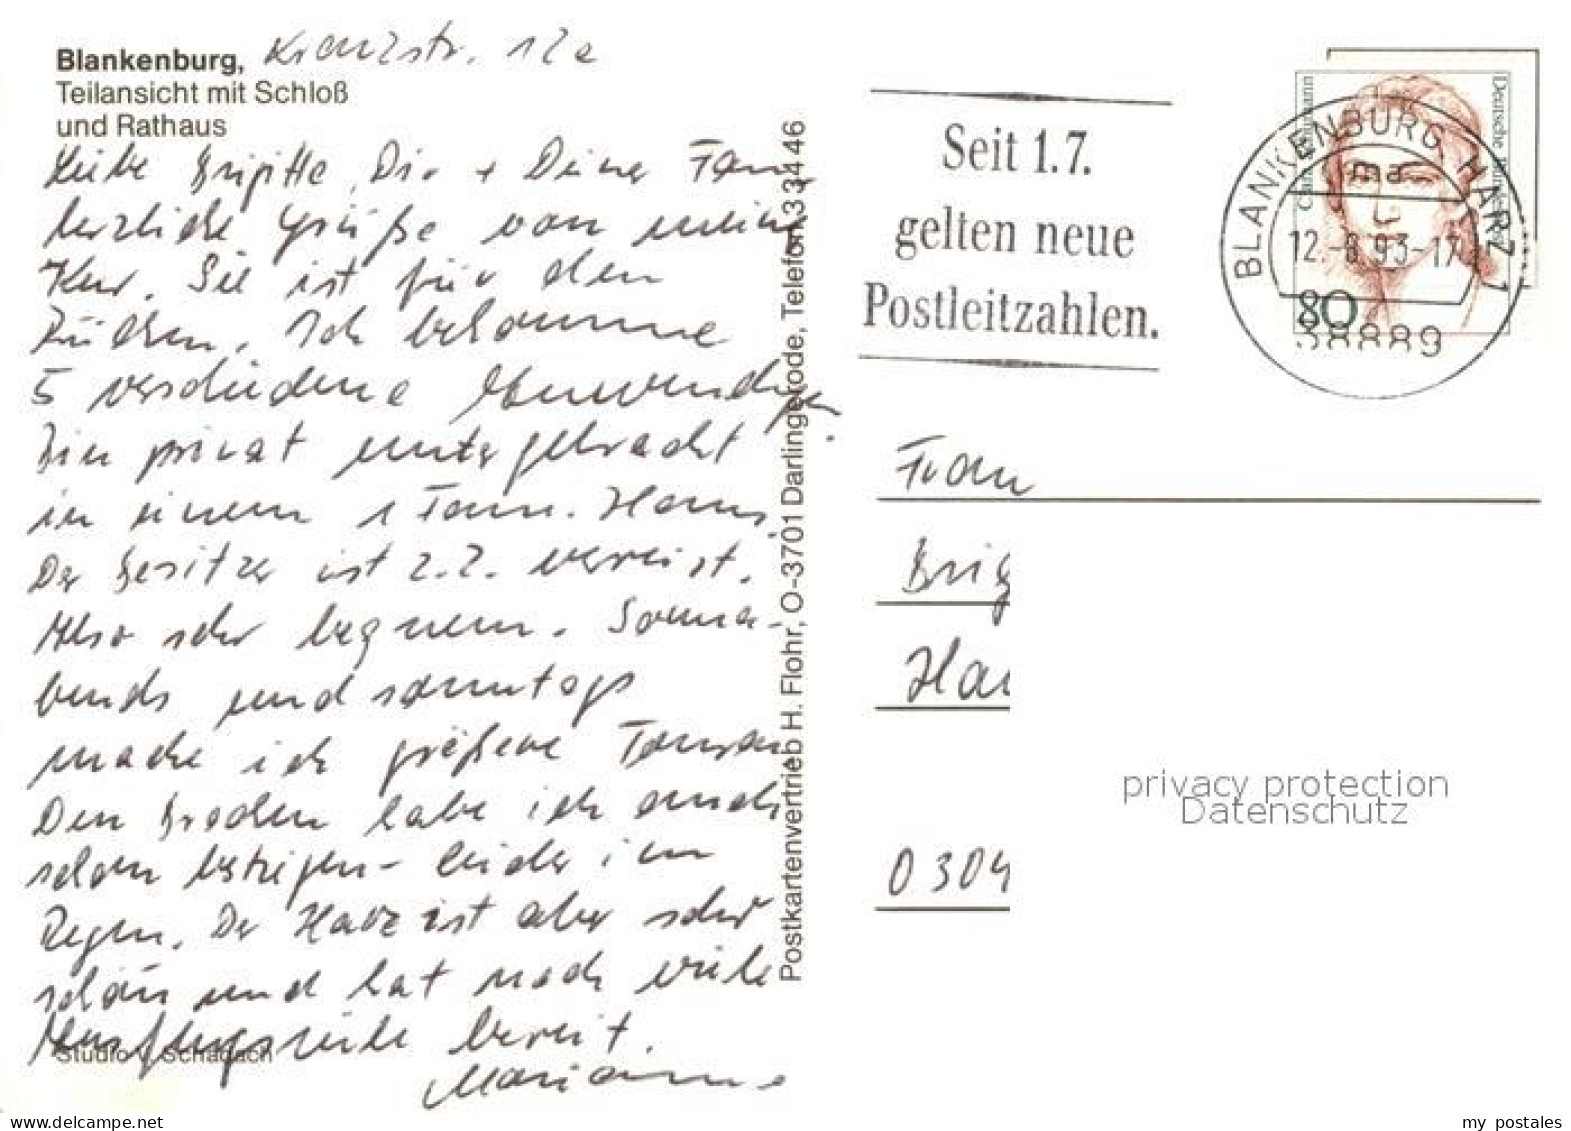 Blankenburg, Kranzstr. 12a
Teilansicht mit Schloß
und Rathaus
Liebe Brigitte, Dir + Deiner Fam.
herzliche Grüße von meiner
Kur. Sie ist für den
Rücken. Ich bekomme
5 verschiedene Anwendungen.
Bin privat untergebracht
in einem 1 Fam. Haus.
Der Besitzer ist z.Z. verreist.
Also sehr bequem. Sonna-
bends und sonntags
mache ich größere Touren
Den Brocken habe ich auch
schon bestiegen - leider im
Regen. Der Harz ist aber sehr
schön und hat noch viele
Ausflugsziele bereit.
Marianne
Studio v. Schadach
Postkartenvertrieb H. Flohr, O-3701 Darlingerode, Telefon 33446
Seit 1.7.
gelten neue
Postleitzahlen.
Deutsche Bundespost
80
BLANKENBURG, HARZ 1
ma
12.-8.93-17
38889
Frau
Brig
Hau
O 304
privacy protection
Datenschutz
www.delcampe.net
my_postales